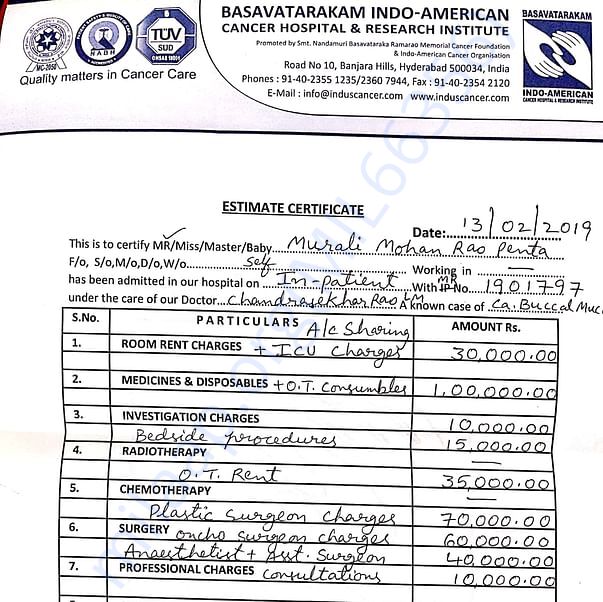 BASAVATARAKAM INDO-AMERICAN
CANCER HOSPITAL & RESEARCH INSTITUTE
Promoted by Smt. Nandamuri Basavataraka Ramarao Memorial Cancer Foundation
& Indo-American Cancer Organisation
Road No 10, Banjara Hills, Hyderabad 500034, India
Phones : 91-40-2355 1235/2360 7944, Fax : 91-40-2354 2120
E-Mail : info@induscancer.com www.induscancer.com
BASAVATARAKAM
INDO-AMERICAN
CANCER HOSPITAL & RESEARCH INSTITUTE
MC-2050
NABH
TÜV
SUD
OHSAS 18001
Quality matters in Cancer Care
ESTIMATE CERTIFICATE
Date: 13/02/2019
This is to certify MR/Miss/Master/Baby Murali Mohan Rao Penta
F/o, S/o,M/o,D/o,W/o Self Working in —
has been admitted in our hospital on In-patient With IP No. MR 1901797
under the care of our Doctor Chandrasekhar Rao A known case of Ca. Buccal Muc
S.No. PARTICULARS A/c Sharing AMOUNT Rs.
1. ROOM RENT CHARGES + ICU Charges 30,000.00
2. MEDICINES & DISPOSABLES + O.T. Consumbles 1,00,000.00
3. INVESTIGATION CHARGES 10,000.00
Bedside procedures 15,000.00
4. RADIOTHERAPY —
O.T. Rent 35,000.00
5. CHEMOTHERAPY —
Plastic Surgeon Charges 70,000.00
6. SURGERY oncho surgeon charges 60,000.00
Anaesthetist + Asst. Surgeon 40,000.00
7. PROFESSIONAL CHARGES consultations 10,000.00